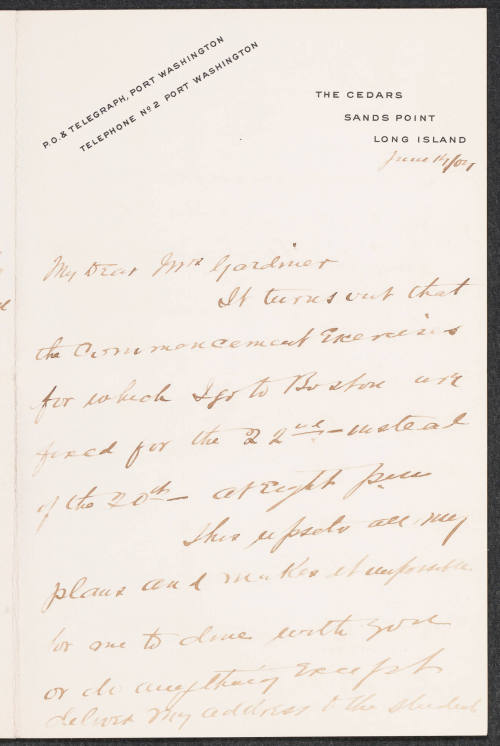 P.O. & TELEGRAPH, PORT WASHINGTON
TELEPHONE No. 2 PORT WASHINGTON
THE CEDARS
SANDS POINT
LONG ISLAND
June 14/04
My Dear Mrs Gardiner
It turns out that
the Commencement Exercises
for which I go to Boston are
fixed for the 22nd – instead
of the 20th – at Eight p.m
This upsets all my
plans and makes it impossible
for me to dine with you
or do anything Except
deliver my address to the students